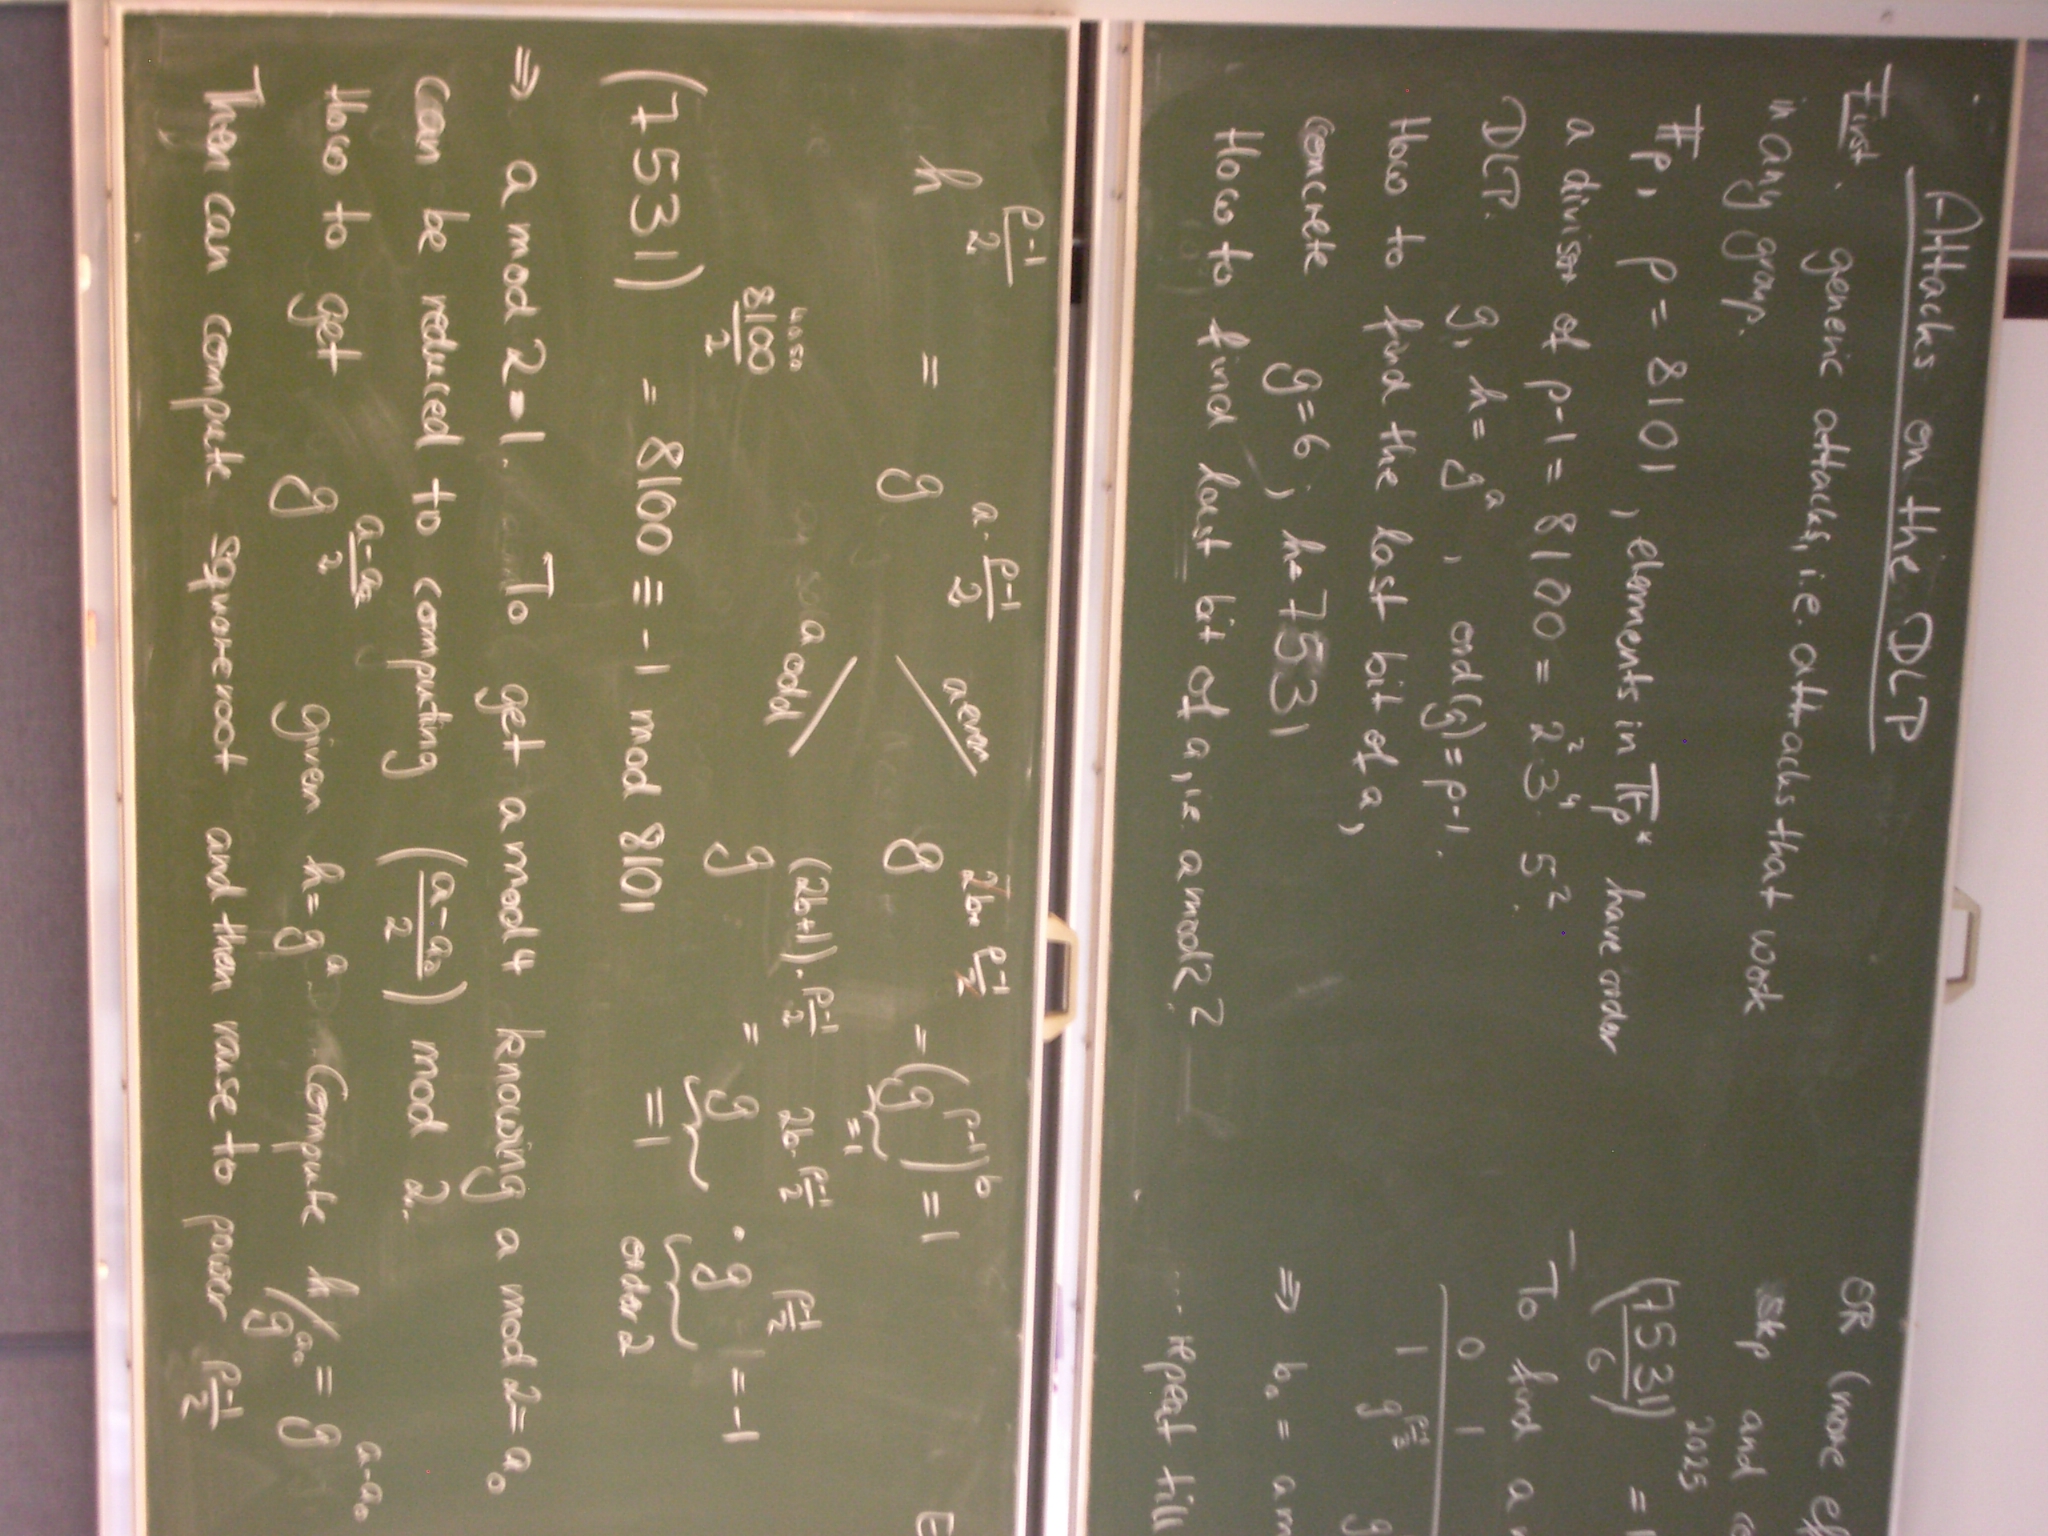 Attacks on the DLP
First. generic attacks, i.e. attacks that work
in any group.
𝔽p, p = 8101, elements in 𝔽p* have order
a divisor of p-1 = 8100 = 2² · 3⁴ · 5².
DLP. g, h = g^a, ord(g) = p-1.
How to find the last bit of a,
concrete g = 6, h = 7531
How to find last bit of a, i.e. a mod 2?
OR (more
skip and
(7531/6)^2025 =
To find a
0 1
1 g^((p-1)/2) g
⇒ b₀ = a
... repeat till
h^((p-1)/2) = g^(a·(p-1)/2)
a even g^(2b·(p-1)/2) = (g^(p-1))^b = 1
=1
a odd g^((2b+1)·(p-1)/2) = g^(2b·(p-1)/2) · g^((p-1)/2) = -1
=1 order 2
4050
(7531)^(8100/2) = 8100 ≡ -1 mod 8101
⇒ a mod 2 = 1. To get a mod 4 knowing a mod 2 = a₀
can be reduced to computing ((a-a₀)/2) mod 2.
How to get g^((a-a₀)/2) given h = g^a? Compute h/g^a₀ = g^(a-a₀)
Then can compute squareroot and then raise to power (p-1)/2